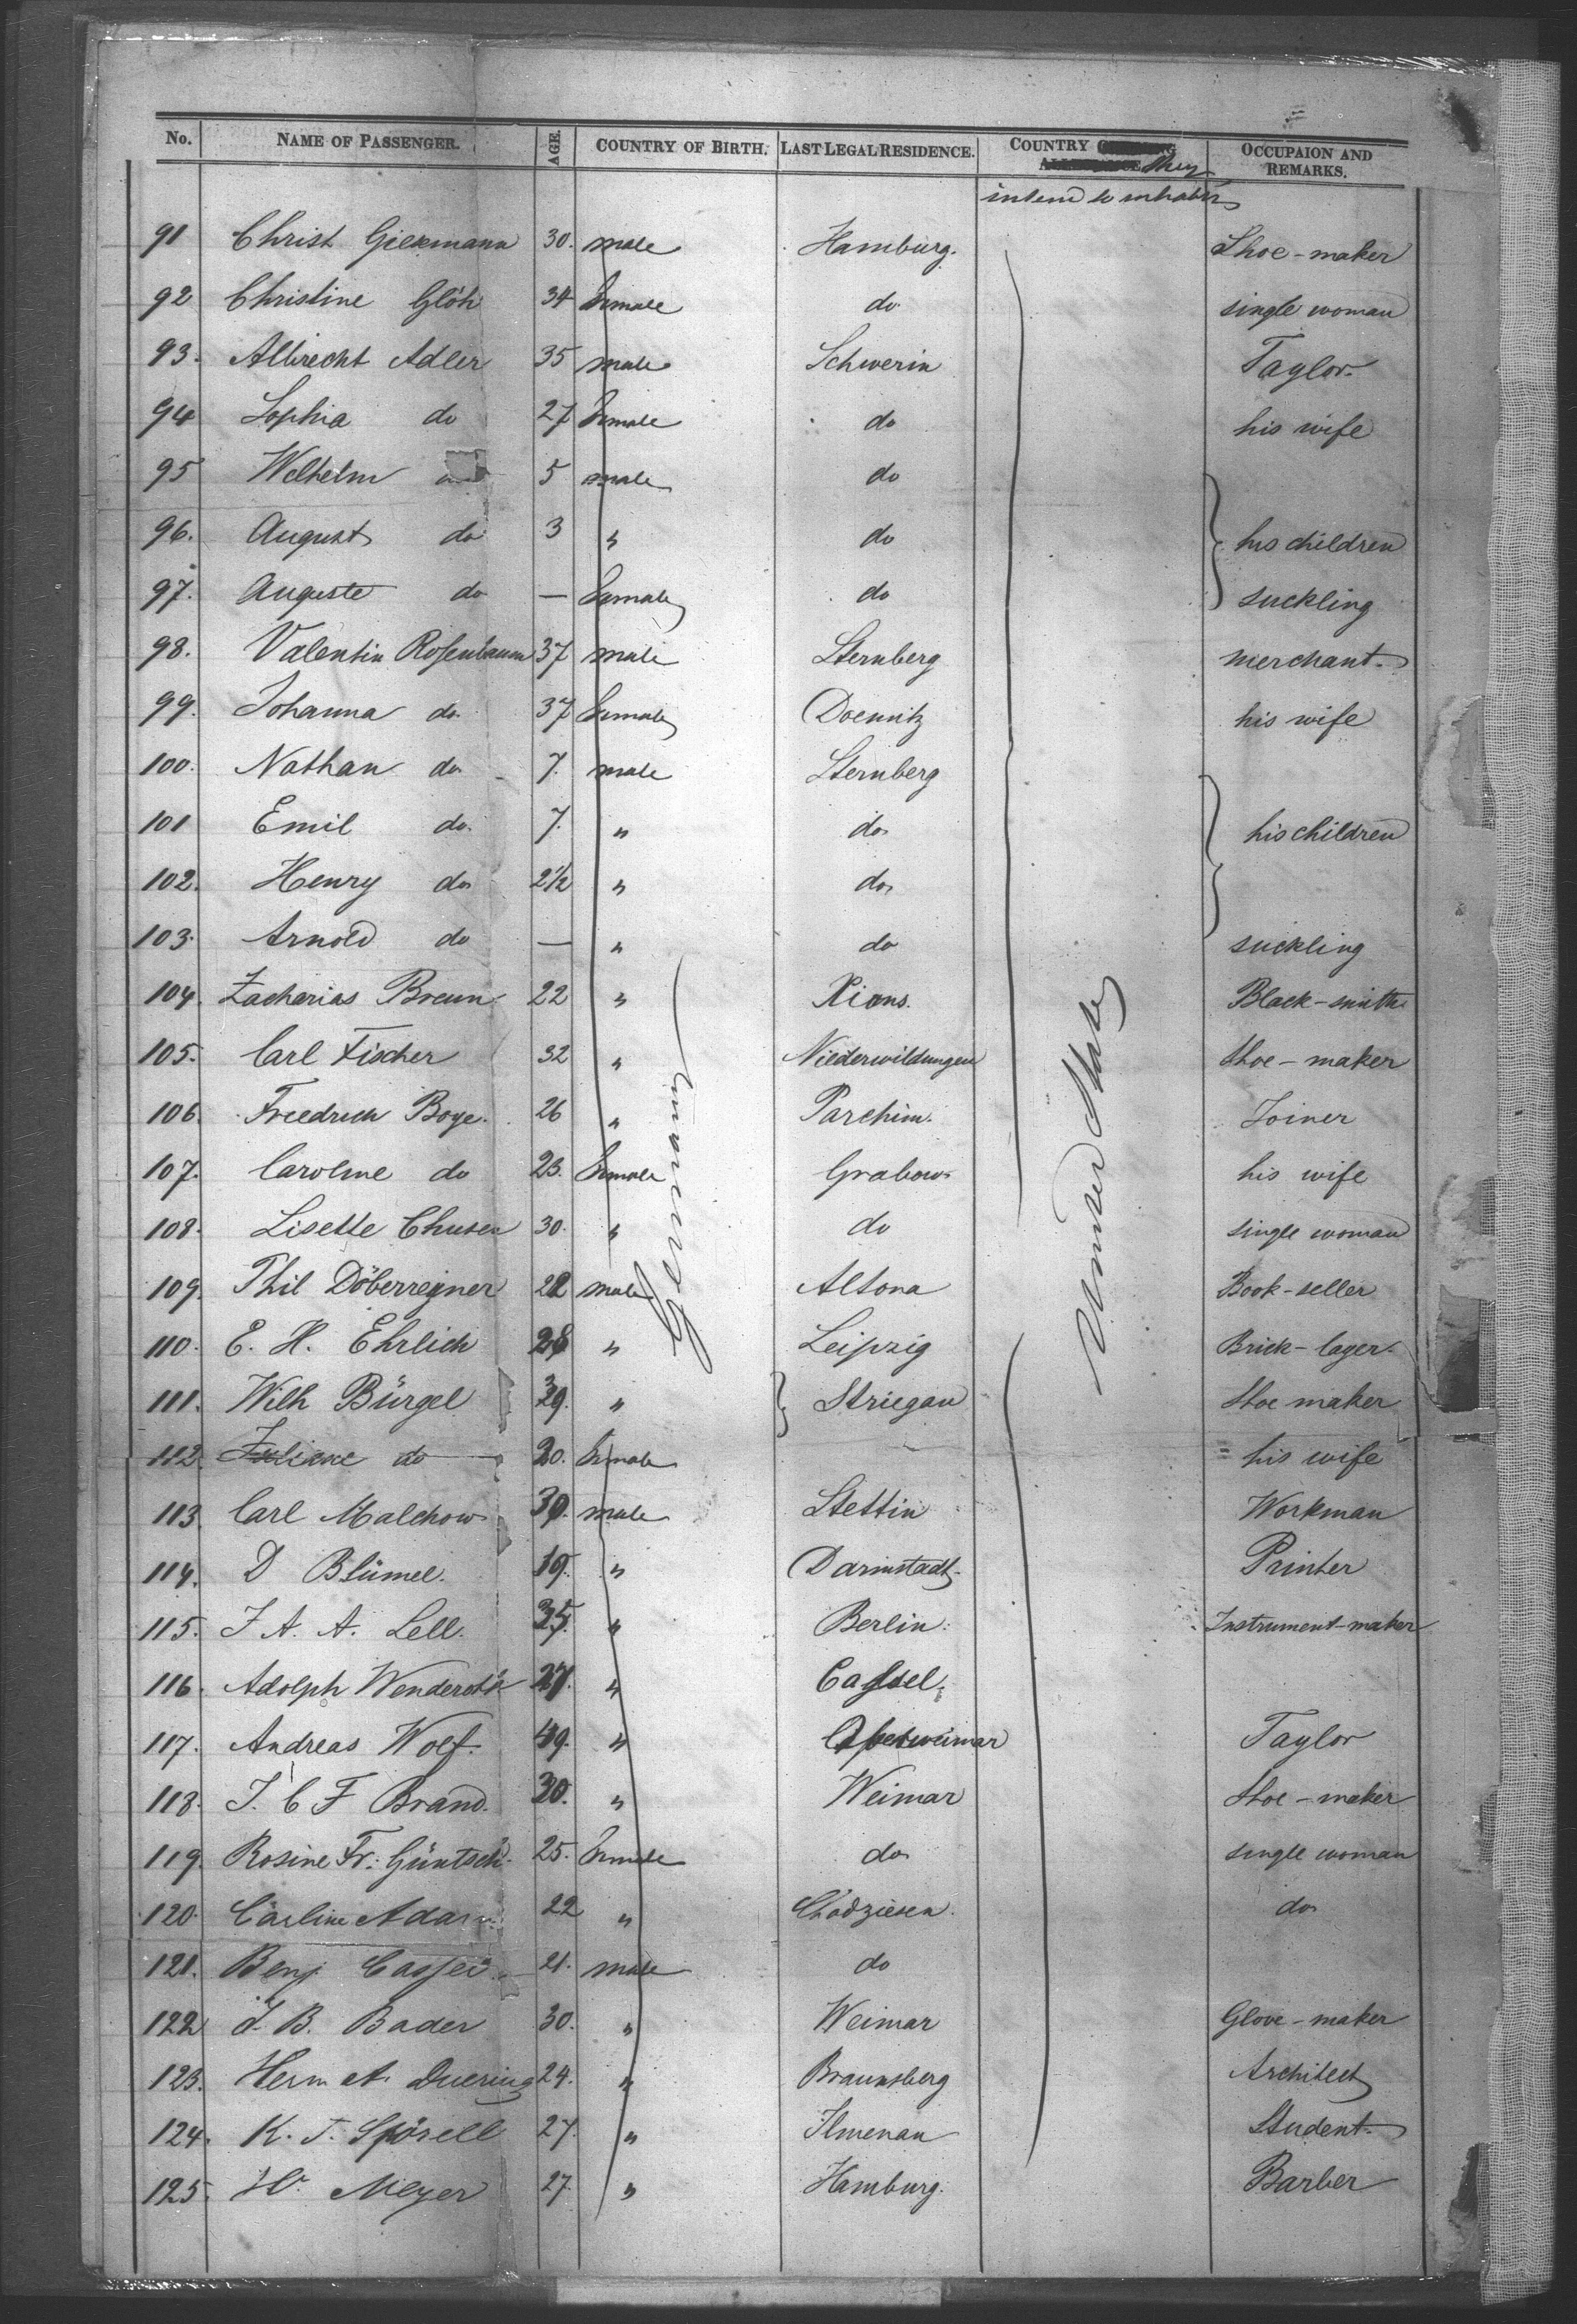 No. NAME OF PASSENGER. AGE. COUNTRY OF BIRTH. LAST LEGAL RESIDENCE. COUNTRY they OCCUPAION AND REMARKS.
intend to inhabit
91 Christ Giekmann 30. male Hamburg. Shoe-maker
92 Christine Glöh 34 female do single woman
93. Albrecht Adler 35 male Schwerin Taylor
94 Sophia do 27 female do his wife
95 Welhelm 5 male do
96. August do 3 " do his children
97. Auguste do — female do suckling
98. Valentin Rosenbaum 37 male Sternberg merchant
99. Johanna do 37 female Doemitz his wife
100. Nathan do 7. male Sternberg
101 Emil do. 7. " do his children
102. Henry do 2 1/2 " do
103. Arnold do — " do suckling
104. Zacharias Breun 22 " Xions. Black-smith
105. Carl Fischer 32 " Niederwildungen Shoe-maker
106. Freedrich Boye. 26 " Parchim. Joiner
107. Caroline do 23. female Grabow his wife
108. Lisette Chusen 30. " do single woman
109. Phil Döberreiner 22 male Altona Book-seller
110. E. H. Ehrlich 28 " Leipzig Brick-layer
111. Wilh Bürgel 39. " Striegau Shoe maker
112. Juliane do 20. female his wife
113. Carl Malchow 39. male Stettin Workman
114. D Blümel. 19. " Darmstadt Printer
115. J A. A. Lell. 35. " Berlin. Instrument-maker
116. Adolph Wenderoth 27. " Cassel.
117. Andreas Wolf. 49. " Taylor
118. J. C F Brand. 30. " Weimar Shoe-maker
119. Rosine Fr: Güntsch. 25. female do single woman
120. Carline Adam 22 " Chodziesen. do
121. Benj. 21. male do
122 J. B. Bader 30. " Weimar Glove-maker
123. Herm A. Duering 24. " Braunsberg Architect
124. K. T. Spörell 27. " Ilmenau Student
125. Hr. Meyer 27. " Hamburg. Barber
Germany
United States